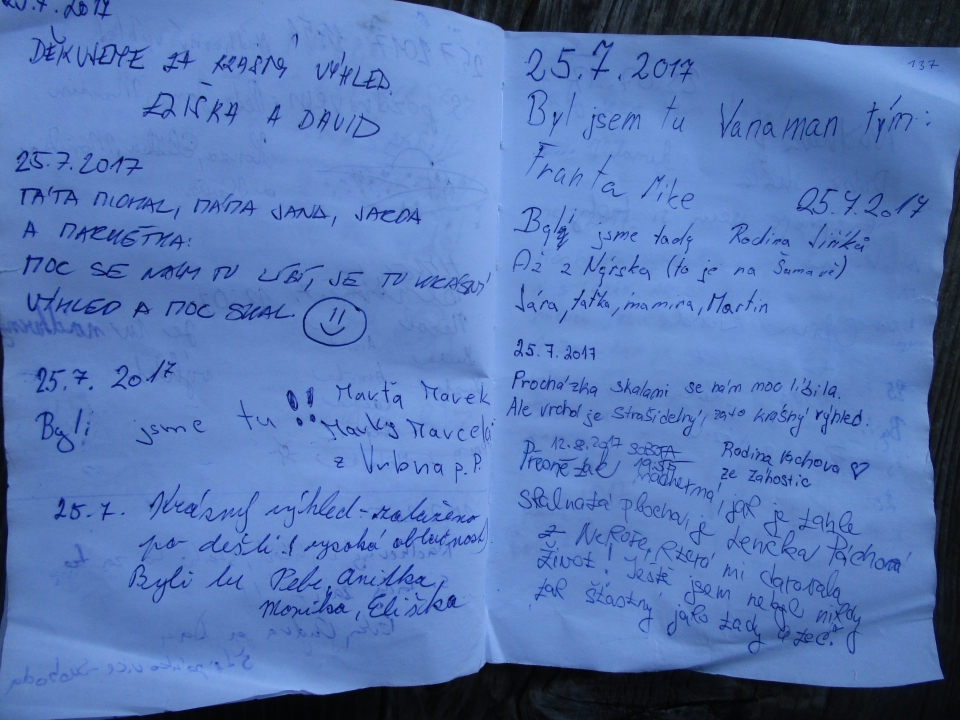 25.7.2017
DĚKUJEME ZA KRÁSNÝ VÝHLED.
ELIŠKA A DAVID
25.7.2017
TÁTA MICHAL, MÁMA JANA, JARDA
A MARKÉTKA:
MOC SE NÁM TU LÍBÍ, JE TU KRÁSNÝ
VÝHLED A MOC SKAL
25.7. 2017
Byli jsme tu !!
Marťa Marek
Marky Marcela
z Vrbna p.P.
25.7. Krásný výhled - zataženo
po dešti (vysoká oblačnost)
Byli tu Anitka,
Monika, Eliška
137
25.7.2017
Byl jsem tu Vanaman tým:
Franta Mike
25.7.2017
Byli jsme tady Rodina Jiříků
Až z Nýrska (to je na Šumavě)
Jára, taťka, mamina, Martin
25.7.2017
Procházka skalami se nám moc líbila.
Ale vrchol je strašidelný, zato krásný výhled.
Rodina
ze Záhostic
12.8.2017 SOBOTA
Přesně tak nádherná jak je zdejší
skalnatá plocha je Lenička
z Nerože, která mi darovala
život! Ještě jsem nebyl nikdy
tak šťastný jako tady a teď!